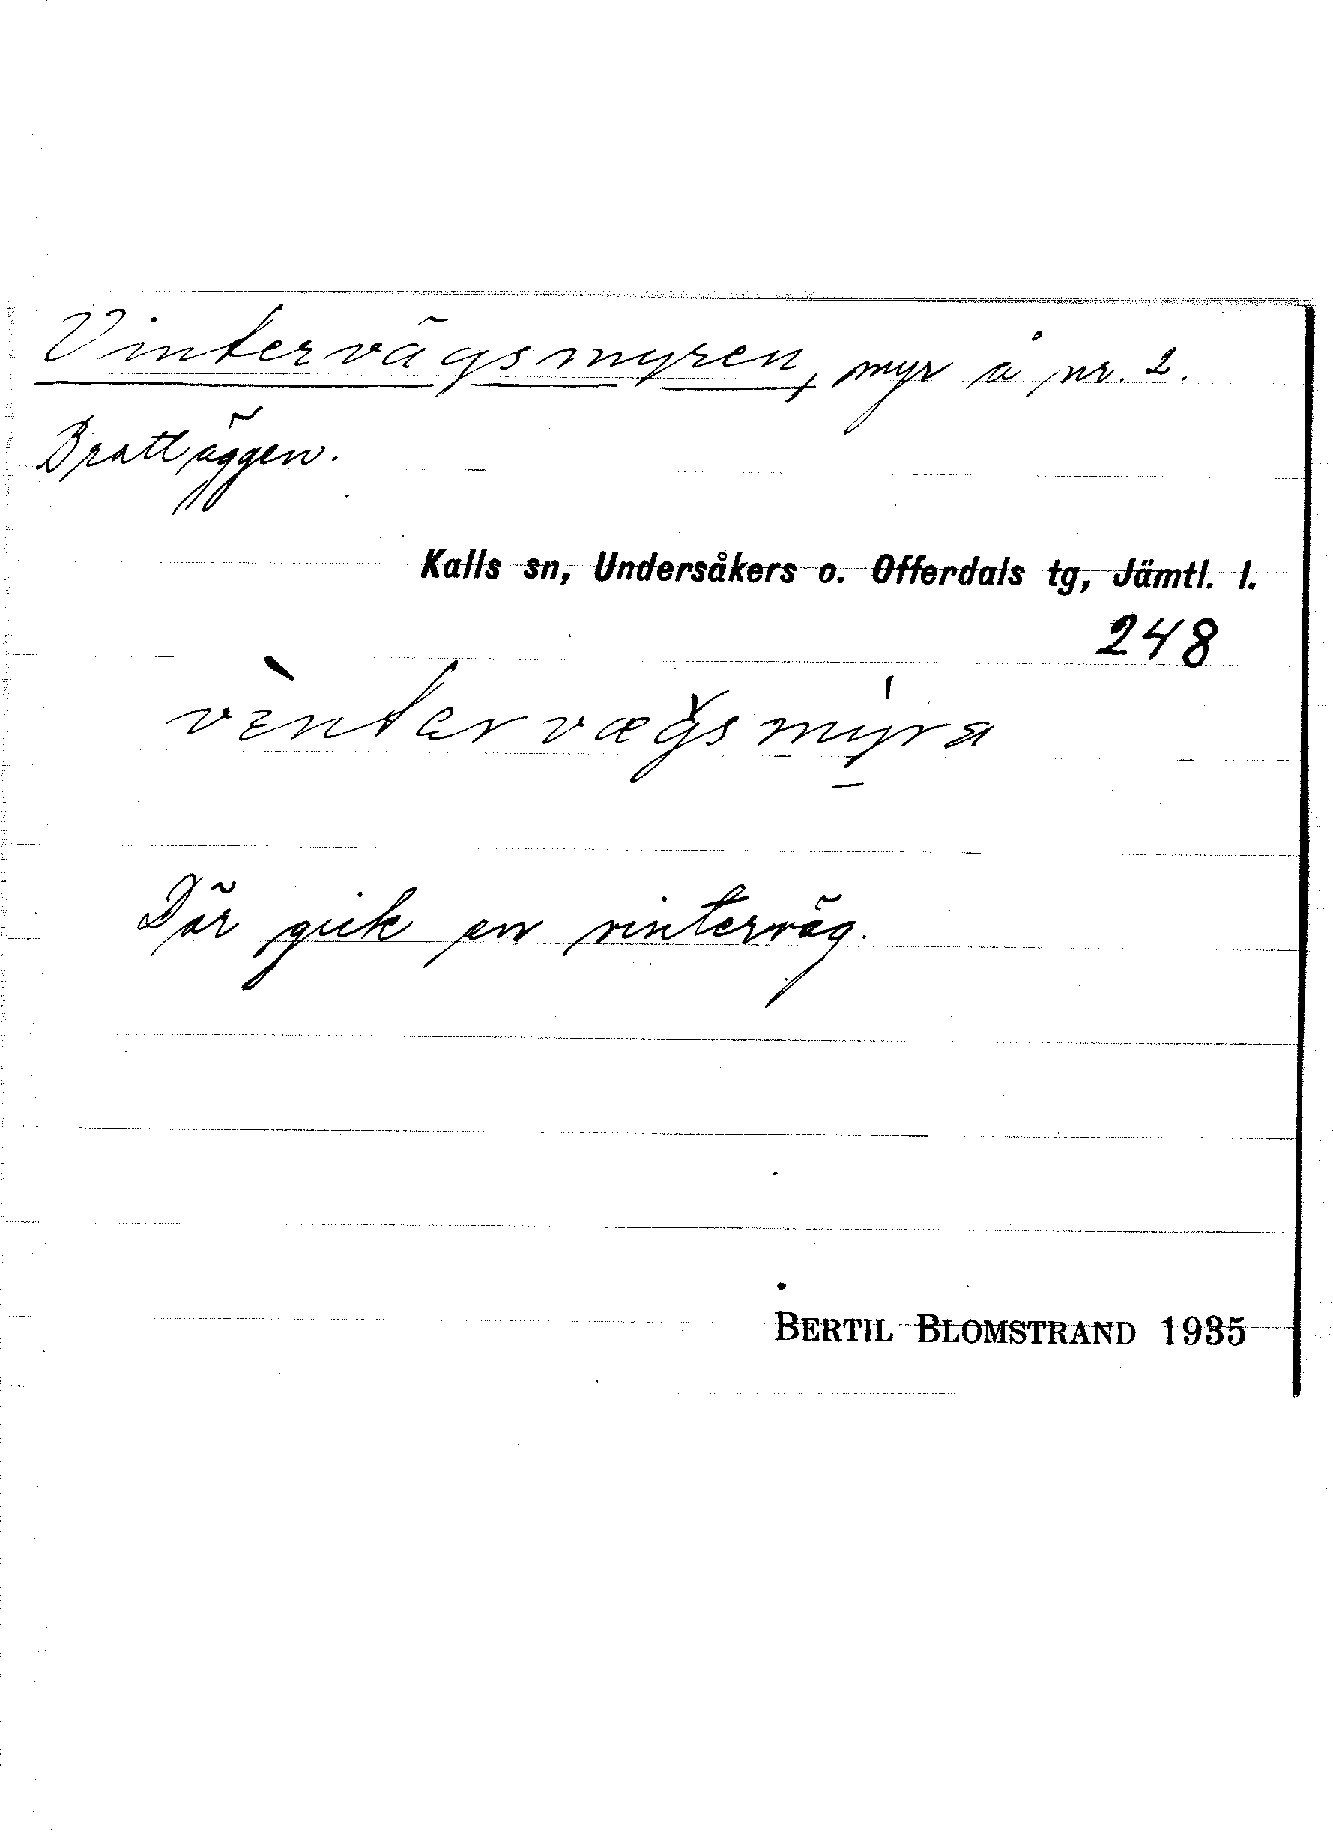 Vintervägsmyren, myr å nr. 2.
Brattäggen.
Kalls sn, Undersåkers o. Offerdals tg, Jämtl. l.
248
vèntervægsmýra
Där gick en vinterväg.
BERTIL BLOMSTRAND 1935